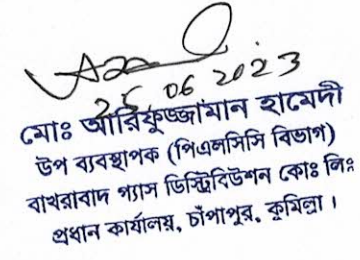 25 06 2023
মোঃ আরিফুজ্জামান হামেদী
উপ ব্যবস্থাপক (পিএলসিসি বিভাগ)
বাখরাবাদ গ্যাস ডিস্ট্রিবিউশন কোঃ লিঃ
প্রধান কার্যালয়, চাঁপাপুর, কুমিল্লা।